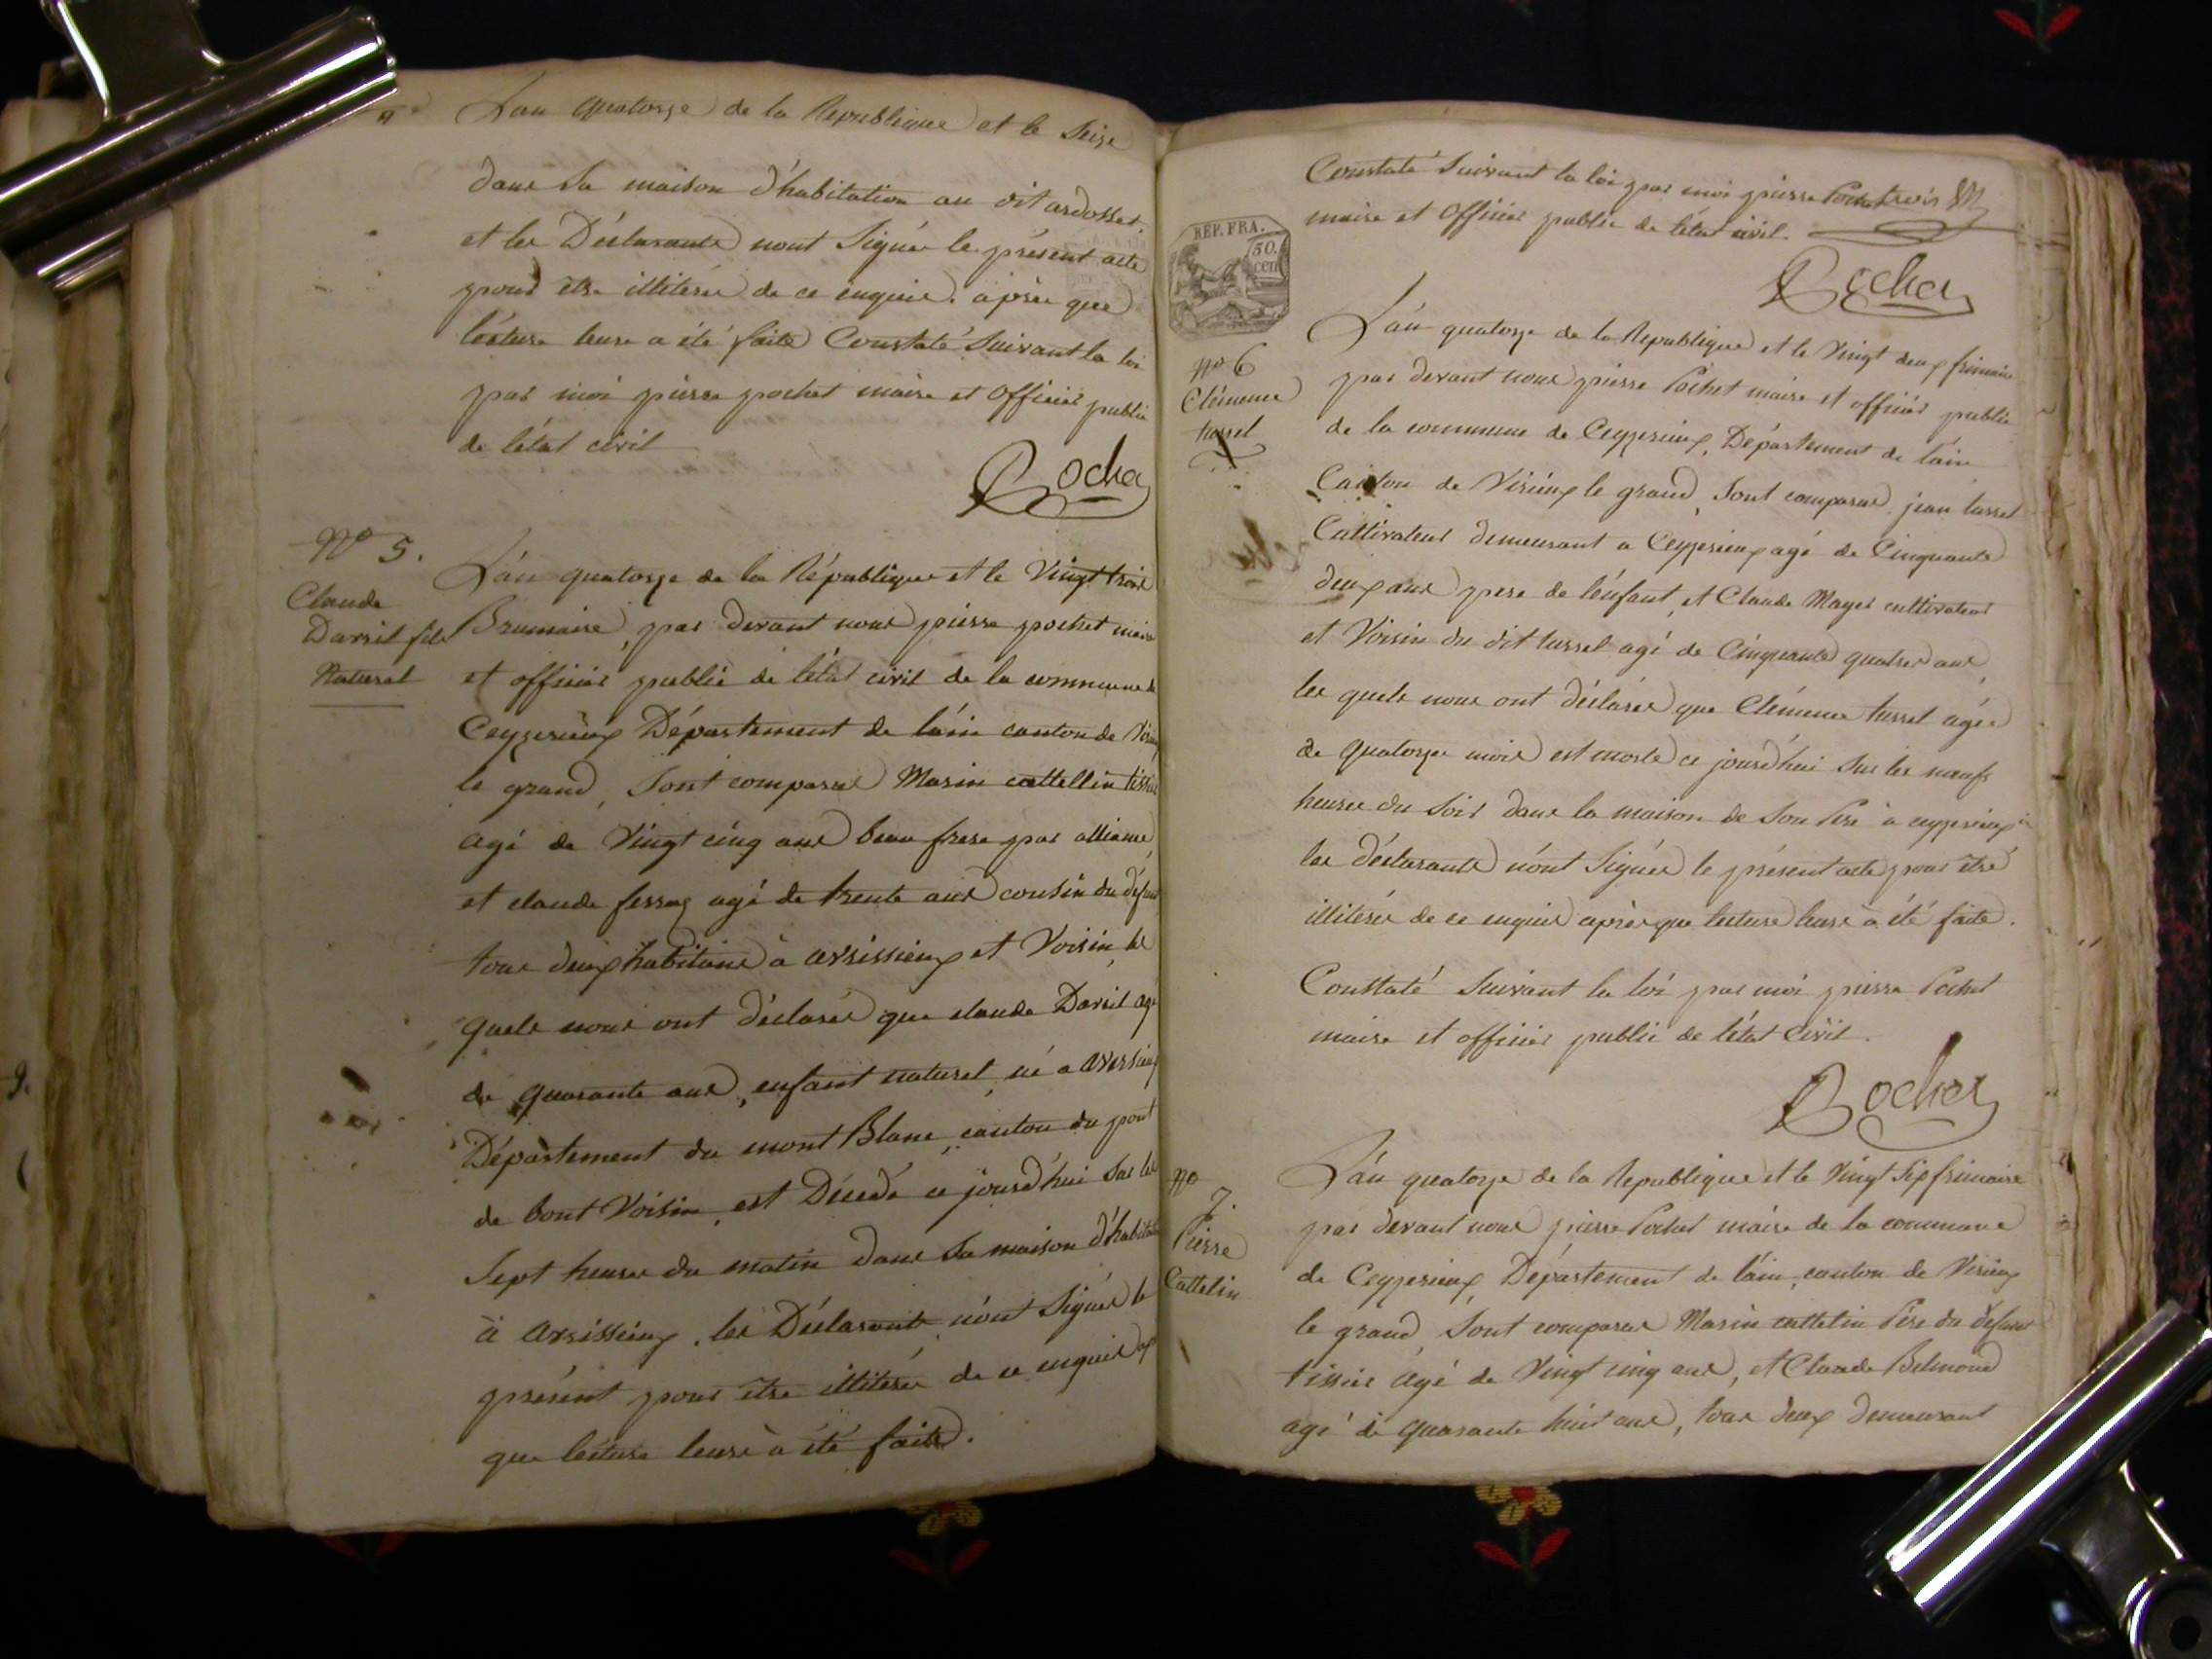 L'an quatorze de la Republique et le Seize
dans sa maison d'habitation au dit ardosset,
et les Déclarants nont Signés le présent acte
pour etre illiterés de ce enquis. après que
lécture leurs a été faite Constaté Suivant la loi
par moi pierre pochet maire et officier public
de létat civil
Pochet
N° 5.
Claude
Darsit fils
Naturel
L'an quatorze de la République et le Vingt trois
Brumaire, par devant nous pierre pochet maire
et officier public de létat civil de la commune de
Ceyzerieux Département de l'ain canton de
le grand, Sont comparus Marin cattellin tissier
agé de Vingt cinq ans beau frere par alliance,
et claude agé de trente ans cousin du défunt
tous deux habitans à avrissieux et Voisin, les
quels nous ont déclarés que claude Darsit agé
de quarante ans, enfant naturel, né a
Département du mont Blanc, canton du pont
de bont Voisin, est Décédé ce jourd'hui sur les
Sept heures du matin dans Sa maison d'habitation
à avrissieux. les Déclarants n'ont Signés le
présent pour être illiterés de ce enquis
que lécture leurs à été faite.
Constaté Suivant la loi par moi pierre Pochet
maire et officier public de létat civil.
Pochet
REP. FRA.
50.
cen
N° 6
Clémence
tussel
L'an quatorze de la Republique et le Vingt deux frimaire
par devant nous pierre Pochet maire et officier public
de la commune de Ceyzerieux, Département de l'ain
Canton de Virieux le grand, Sont comparus jean tussel
Cultivateur demeurant a Ceyzerieux agé de Cinquante
deux ans pere de lénfant, et Claude Mayet cultivateur
et Voisin du dit tussel agé de Cinquante quatre ans,
les quels nous ont déclarés que Clémence tussel agée
de quatorze mois est morte ce jourd'hui sur les neufs
heures du Soir dans la maison de Son Pere à ceyzerieux
les déclarants n'ont Signés le présent acte pour être
illiterés de ce enquis après que lecture leurs à été faite.
Constaté Suivant la loi par moi pierre Pochet
maire et officier public de létat Civil.
Pochet
N°
7.
Pierre
Cattelin
L'an quatorze de la Republique et le Vingt Six frimaire
par devant nous pierre Pochet maire de la commune
de Ceyzerieux, Département de l'ain, canton de Virieux
le grand, Sont comparus Marin cattelin Pere du défunt
tissier agé de Vingt cinq ans, et Claude Belmond
agé de quarante huit ans, tous deux demeurant